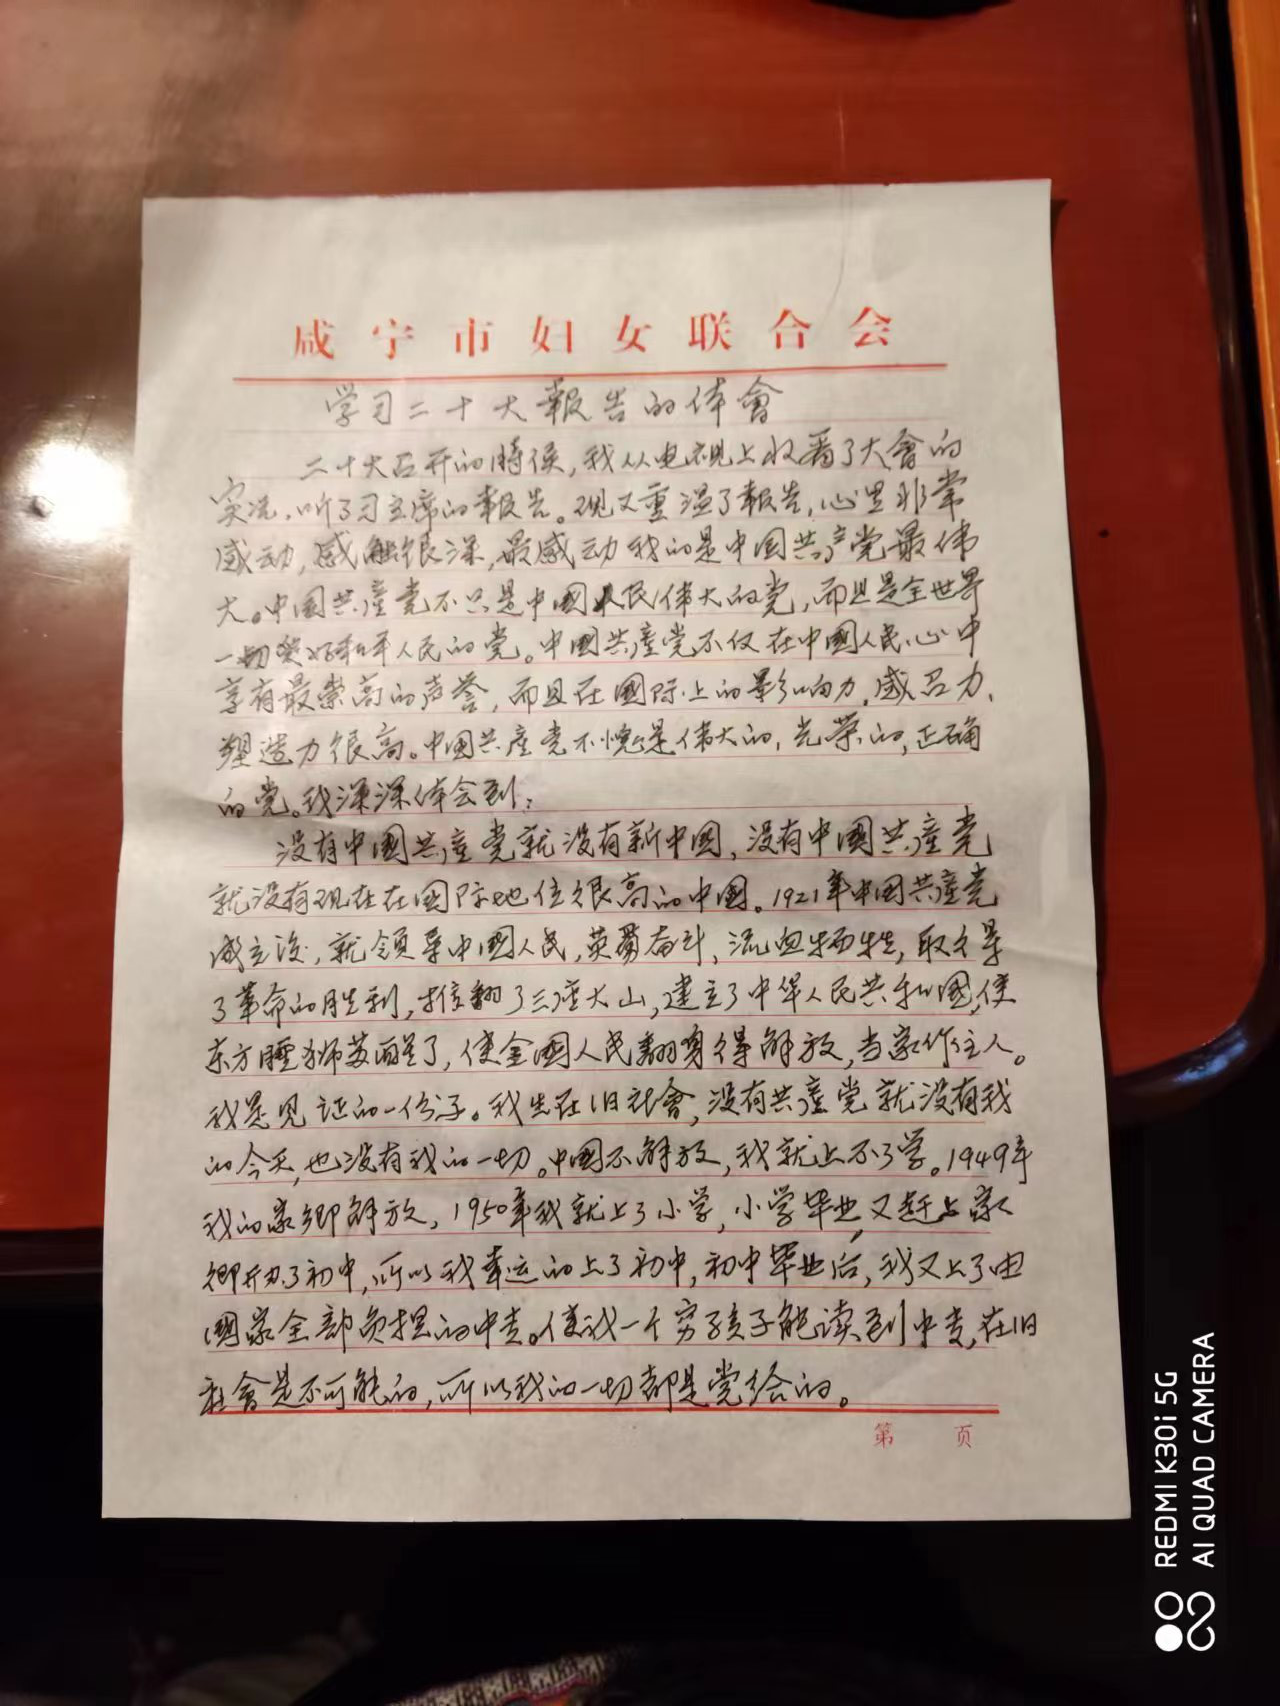 咸宁市妇女联合会
学习二十大報告的体會
二十大召开的時侯,我从电视上收看了大會的
实况,听了习主席的報告。现又重温了報告,心里非常
感动,感触很深,最感动我的是中国共产党最伟
大。中国共產党不只是中國人民伟大的党,而且是全世界
一切爱好和平人民的党。中國共產党不仅在中國人民心中
享有最崇高的声誉,而且在國际上的影响力,感召力、
塑造力很高。中國共產党不愧是伟大的,光荣的,正确
的党。我深深体会到:
没有中國共產党就没有新中國,没有中國共產党
就没有现在在國际地位很高的中國。1921年中國共產党
成立後,就领导中國人民,英勇奋斗,流血牺牲,取得
了革命的胜利,推翻了三座大山,建立了中华人民共和國,使
东方睡狮苏醒了,使全國人民翻身得解放,当家作主人。
我是见证的一份子。我生在旧社會,没有共產党就没有我
的今天,也没有我的一切。中國不解放,我就上不了学。1949年
我的家鄉解放,1950年我就上了小学,小学毕业,又赶上家
鄉开办了初中,所以我幸运的上了初中,初中毕业后,我又上了由
國家全部负担的中专。使我一个穷孩子能读到中专,在旧
社會是不可能的,所以我的一切都是党给的。
第 页
REDMI K30i 5G
AI QUAD CAMERA